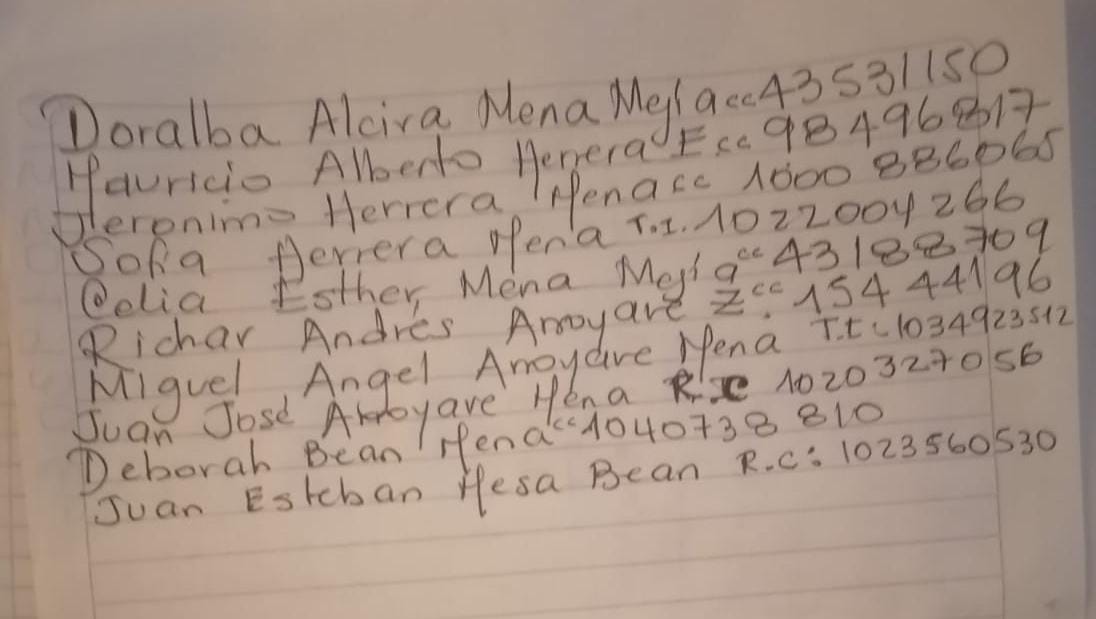 Doralba Alcira Mena Mejía cc 43531150
Mauricio Alberto Herrera E cc 98496817
Jeronimo Herrera Mena cc 1000 886065
Sofia Herrera Mena T.I. 1022004266
Celia Esther Mena Mejía cc 43188709
Richar Andrés Arroyave Z cc. 154 44196
Miguel Angel Arroyave Mena T.I: 1034923512
Juan José Arroyave Mena R.C 1020327056
Deborah Bean Mena cc 1040738 810
Juan Esteban Mesa Bean R.C: 1023560530